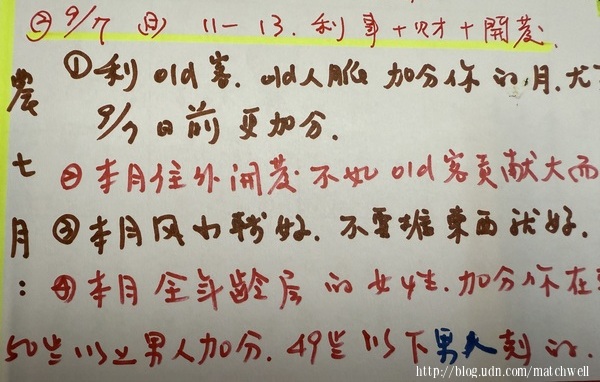 ② 9/7 (月) 11-13.利事+財+開發.
農七月:
①利old客.old人脈加分你的月.尤
9/7日前更加分.
②本月往外開發不如old客貢献大而
③本月风水較好.不要擋東西就好.
④本月全年齡层的女性.加分你在
50岁以上男人加分.49岁以下男人剋的.
http://blog.udn.com/matchwell